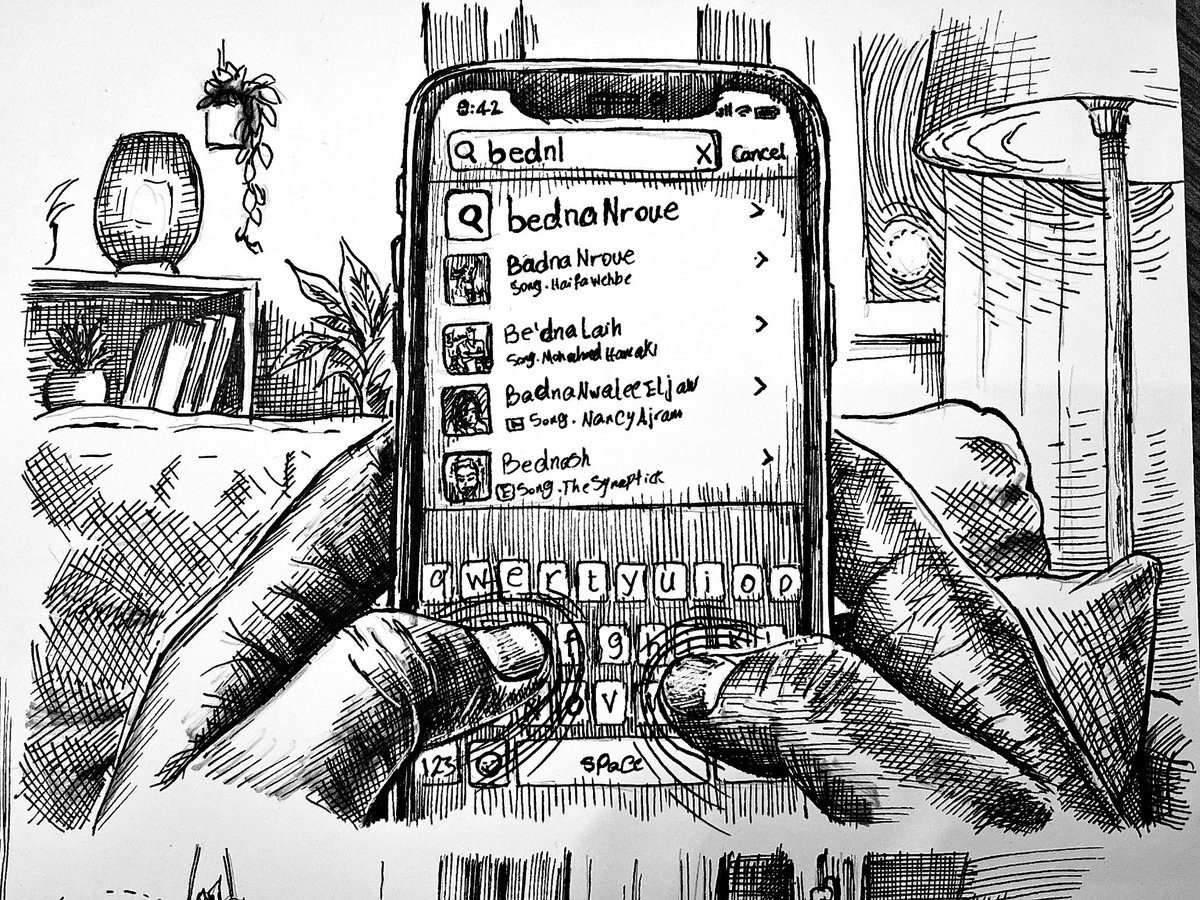 8:42
bednl X Cancel
bednaNroue
Badna Nroue
Song. Haifa Wehbe
Be'dna Laih
Song. Mohamed Hamaki
BadnaNwaleeEljaw
E Song. NancyAjram
Bednash
E Song. TheSynaptick
q w e r t y u i o p
f g h k l
v
123 space